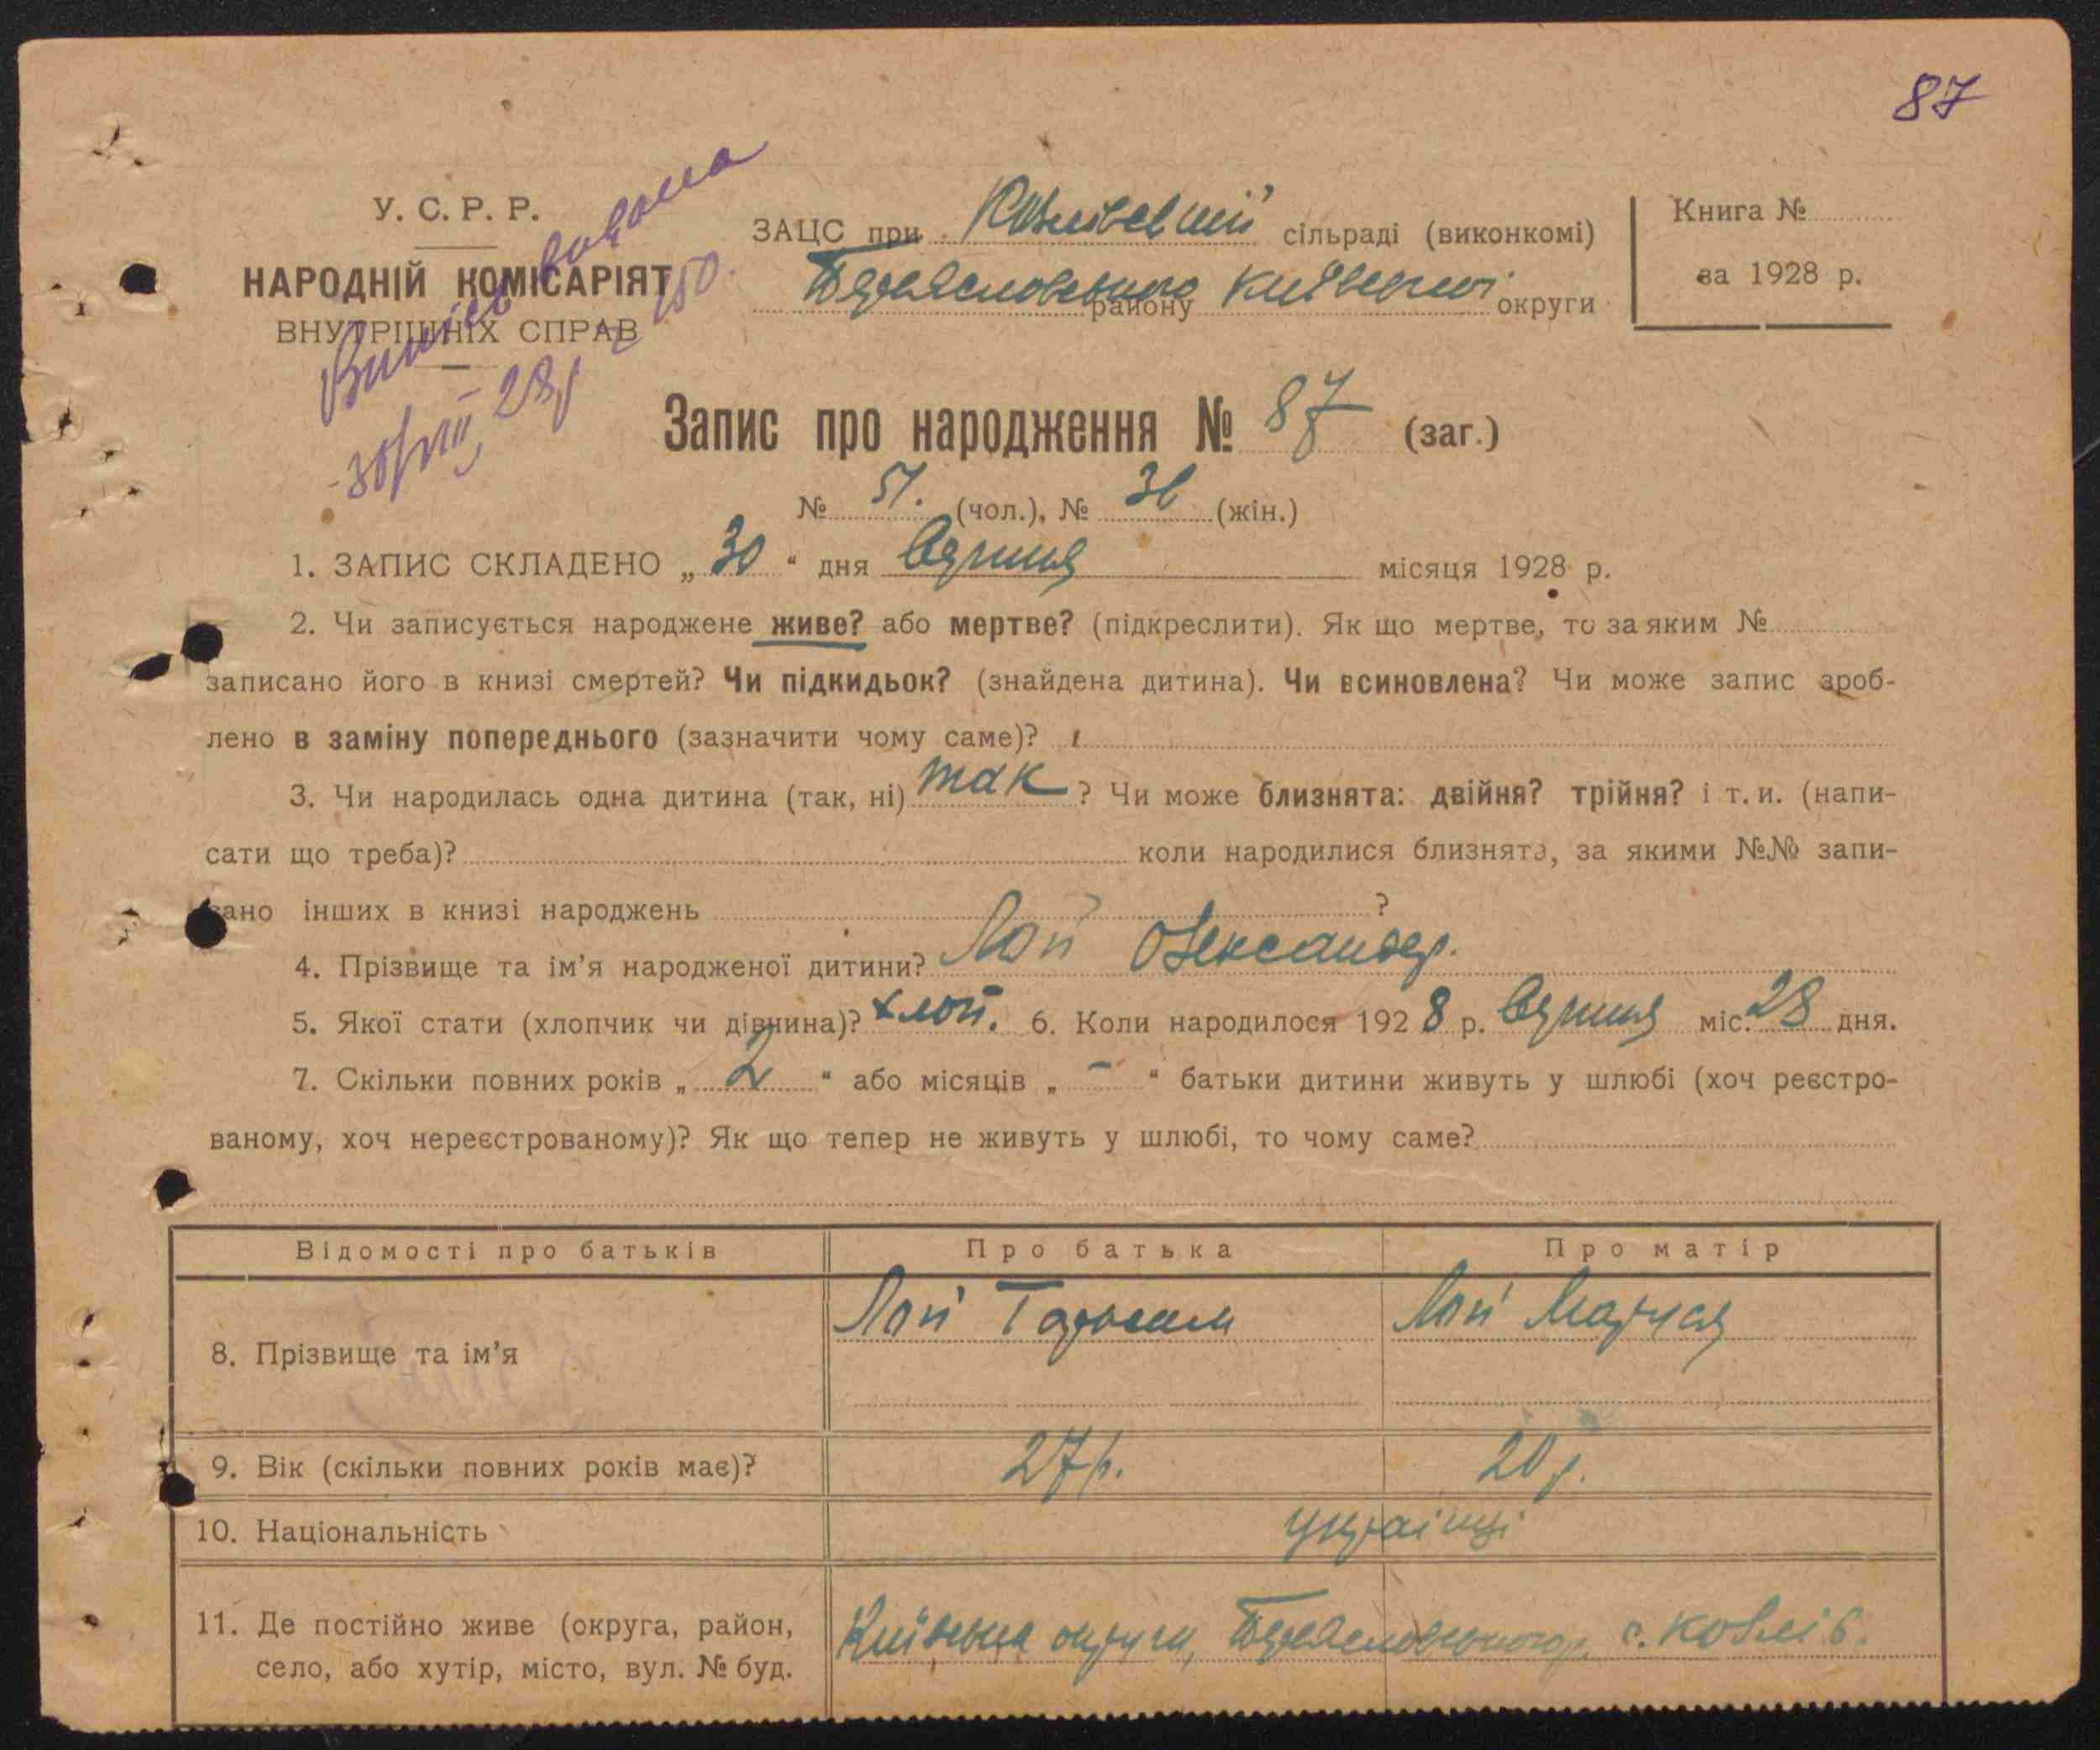 87
У. С. Р. Р.
НАРОДНІЙ КОМІСАРІЯТ
ВНУТРІШНІХ СПРАВ
ЗАЦС при Козлівській сільраді (виконкомі)
Переяславського району Київської округи
Книга №
за 1928 р.
30/VIII 28 р
Запис про народження № 87 (заг.)
№ 51. (чол.), № 36 (жін.)
1. ЗАПИС СКЛАДЕНО „ 30 “ дня Серпня місяця 1928 р.
2. Чи записується народжене живе? або мертве? (підкреслити). Як що мертве, то за яким №
записано його в книзі смертей? Чи підкидьок? (знайдена дитина). Чи всиновлена? Чи може запис зроб-
лено в заміну попереднього (зазначити чому саме)?
3. Чи народилась одна дитина (так, ні) так ? Чи може близнята: двійня? трійня? і т. и. (напи-
сати що треба)? коли народилися близнята, за якими №№ запи-
сано інших в книзі народжень ?
4. Прізвище та ім’я народженої дитини? Лой Олександер.
5. Якої стати (хлопчик чи дівчина)? хлоп. 6. Коли народилося 1928 р. Серпня міс. 28 дня.
7. Скільки повних років „ 2 “ або місяців „ – “ батьки дитини живуть у шлюбі (хоч реєстро-
ваному, хоч нереєстрованому)? Як що тепер не живуть у шлюбі, то чому саме?
Відомості про батьків Про батька Про матір
8. Прізвище та ім’я Лой Тарасам Лой Маруся
9. Вік (скільки повних років має)? 27 р. 20 р.
10. Національність українці
11. Де постійно живе (округа, район,
село, або хутір, місто, вул. № буд.
Київська округи, Переяславського р. с. Козлів.